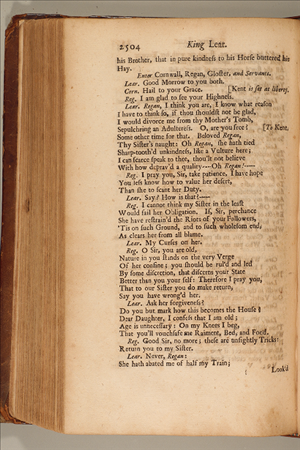 2504 King Lear.
his Brother, that in pure kindness to his Horse buttered his
Hay.
Enter Cornwall, Regan, Gloster, and Servants.
Lear. Good Morrow to you both.
Corn. Hail to your Grace. [Kent is set at liberty.
Reg. I am glad to see your Highness.
Lear. Regan, I think you are, I know what reason
I have to think so, if thou shouldst not be glad,
I would divorce me from thy Mother's Tomb,
Sepulchring an Adulteress. O, are you free? [To Kent.
Some other time for that. Beloved Regan,
Thy Sister's naught: Oh Regan, she hath tied
Sharp-tooth'd unkindness, like a Vulture here;
I can scarce speak to thee, thou'lt not believe
With how deprav'd a quality---Oh Regan!---
Reg. I pray you, Sir, take patience, I have hope
You less know how to value her desert,
Than she to scant her Duty.
Lear. Say? How is that?---
Reg. I cannot think my Sister in the least
Would fail her Obligation. If, Sir, perchance
She have restrain'd the Riots of your Followers,
'Tis on such Ground, and to such wholsom end,
As clears her from all blame.
Lear. My Curses on her.
Reg. O Sir, you are old,
Nature in you stands on the very Verge
Of her confine; you should be rul'd and led
By some discretion, that discerns your State
Better than you your self: Therefore I pray you,
That to our Sister you do make return,
Say you have wrong'd her.
Lear. Ask her forgiveness?
Do you but mark how this becomes the House?
Dear Daughter, I confess that I am old;
Age is unnecessary: On my Knees I beg,
That you'll vouchsafe me Raiment, Bed, and Food.
Reg. Good Sir, no more; these are unsightly Tricks:
Return you to my Sister.
Lear. Never, Regan:
She hath abated me of half my Train;
Look'd